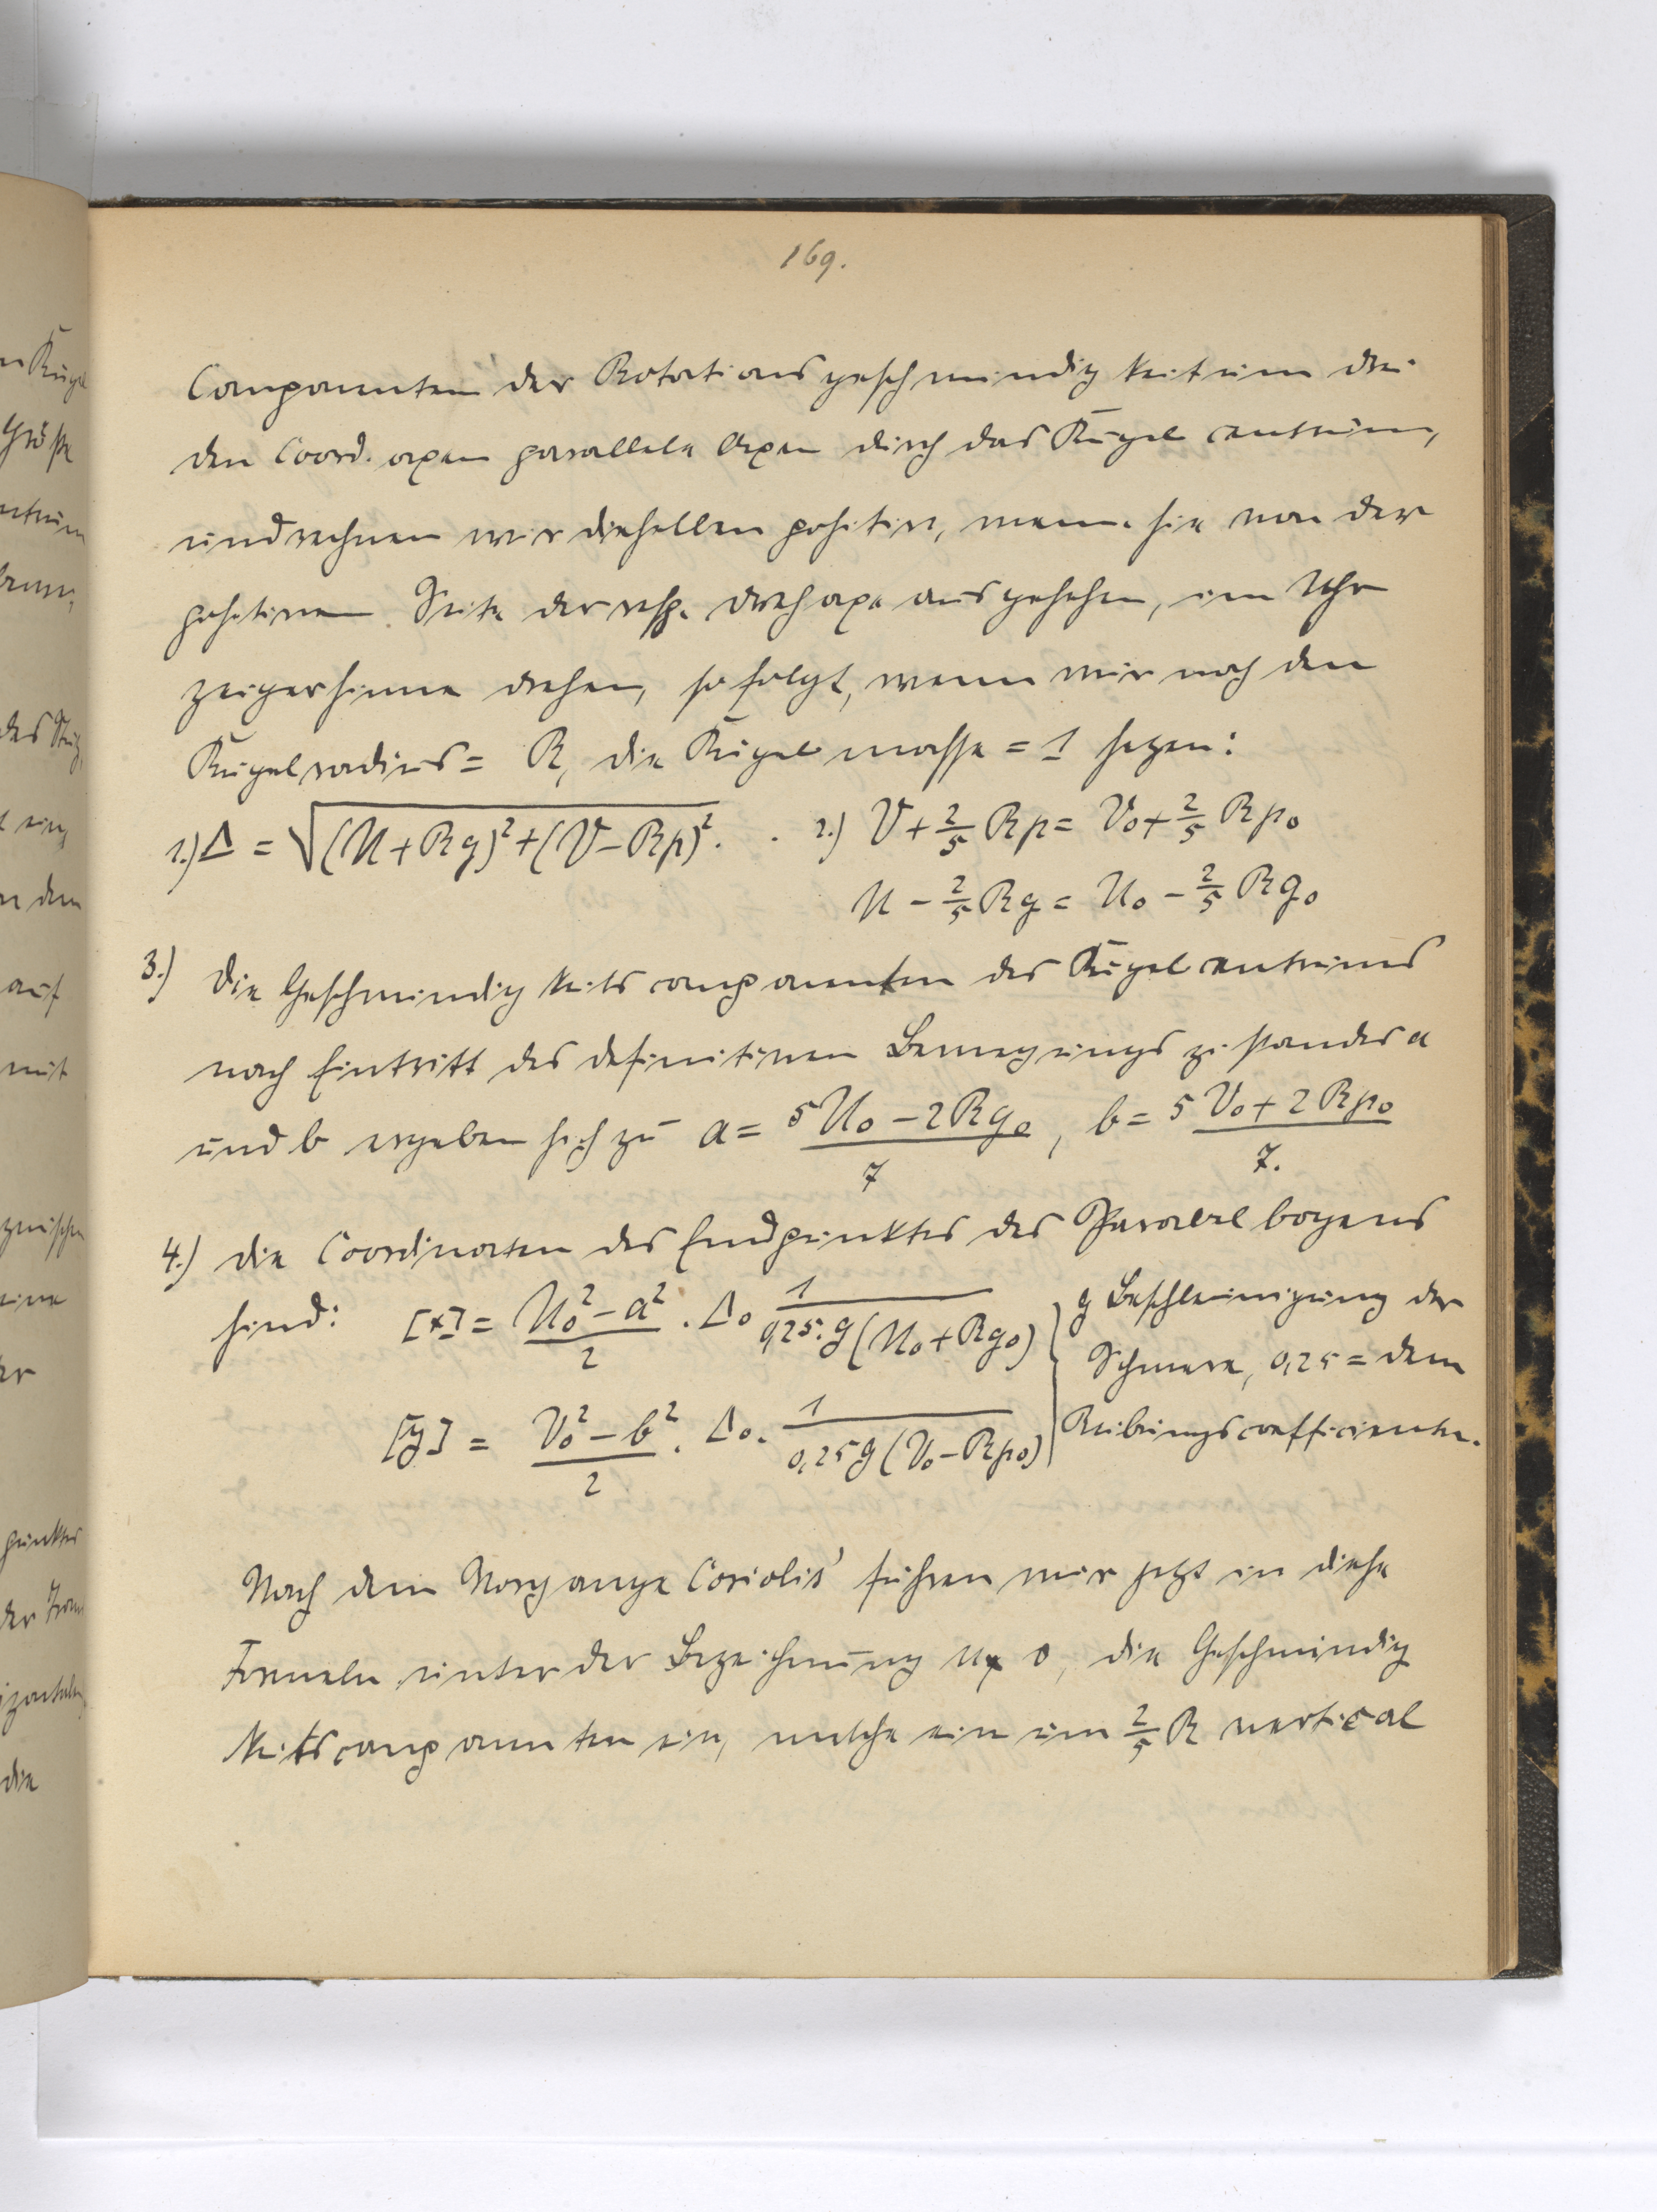 169.
Componenten der Rotationsgeschwindigkeit um drei
den Coord. axen parallele Axen durch das Kugelcentrum,
und rechnen wir dieselben positiv, wenn sie von der
positiven Seite der resp. Drehaxe aus gesehen, im Uhr
zeigersinne drehen, so folgt, wenn wir noch den
Kugelradius = R, die Kugelmasse = 1 setzen:
1.) Δ = √(U + Rq)² + (V − Rp)². . 2.) V + 2/5 Rp = V₀ + 2/5 Rp₀
U − 2/5 Rq = U₀ − 2/5 Rq₀
3.) Die Geschwindigkeitscomponenten des Kugelcentrums
nach Eintritt des definitiven Bewegungszustandes a
und b ergeben sich zu a = (5U₀ − 2Rq₀)/7, b = (5V₀ + 2Rp₀)/7.
4.) Die Coordinaten des Endpunktes des Parabelbogens
sind: [x] = (U₀² − a²)/2 . Δ₀ 1/(0,25.g(U₀ + Rq₀)) g Beschleunigung der
Schwere, 0,25 = dem
[y] = (V₀² − b²)/2 . Δ₀. 1/(0,25g(V₀ − Rp₀)) Reibungscoefficienten.
Nach dem Vorgange Coriolis' führen wir jetzt in diese
Formeln unter der Bezeichnung die Geschwindig
keitscomponenten ein, welche ein um 2/5 R vertical
n Kugel
Größe
ntrum
des
t ein
n dem
auf
mit
zwischen
eine
er
punktes
der
die